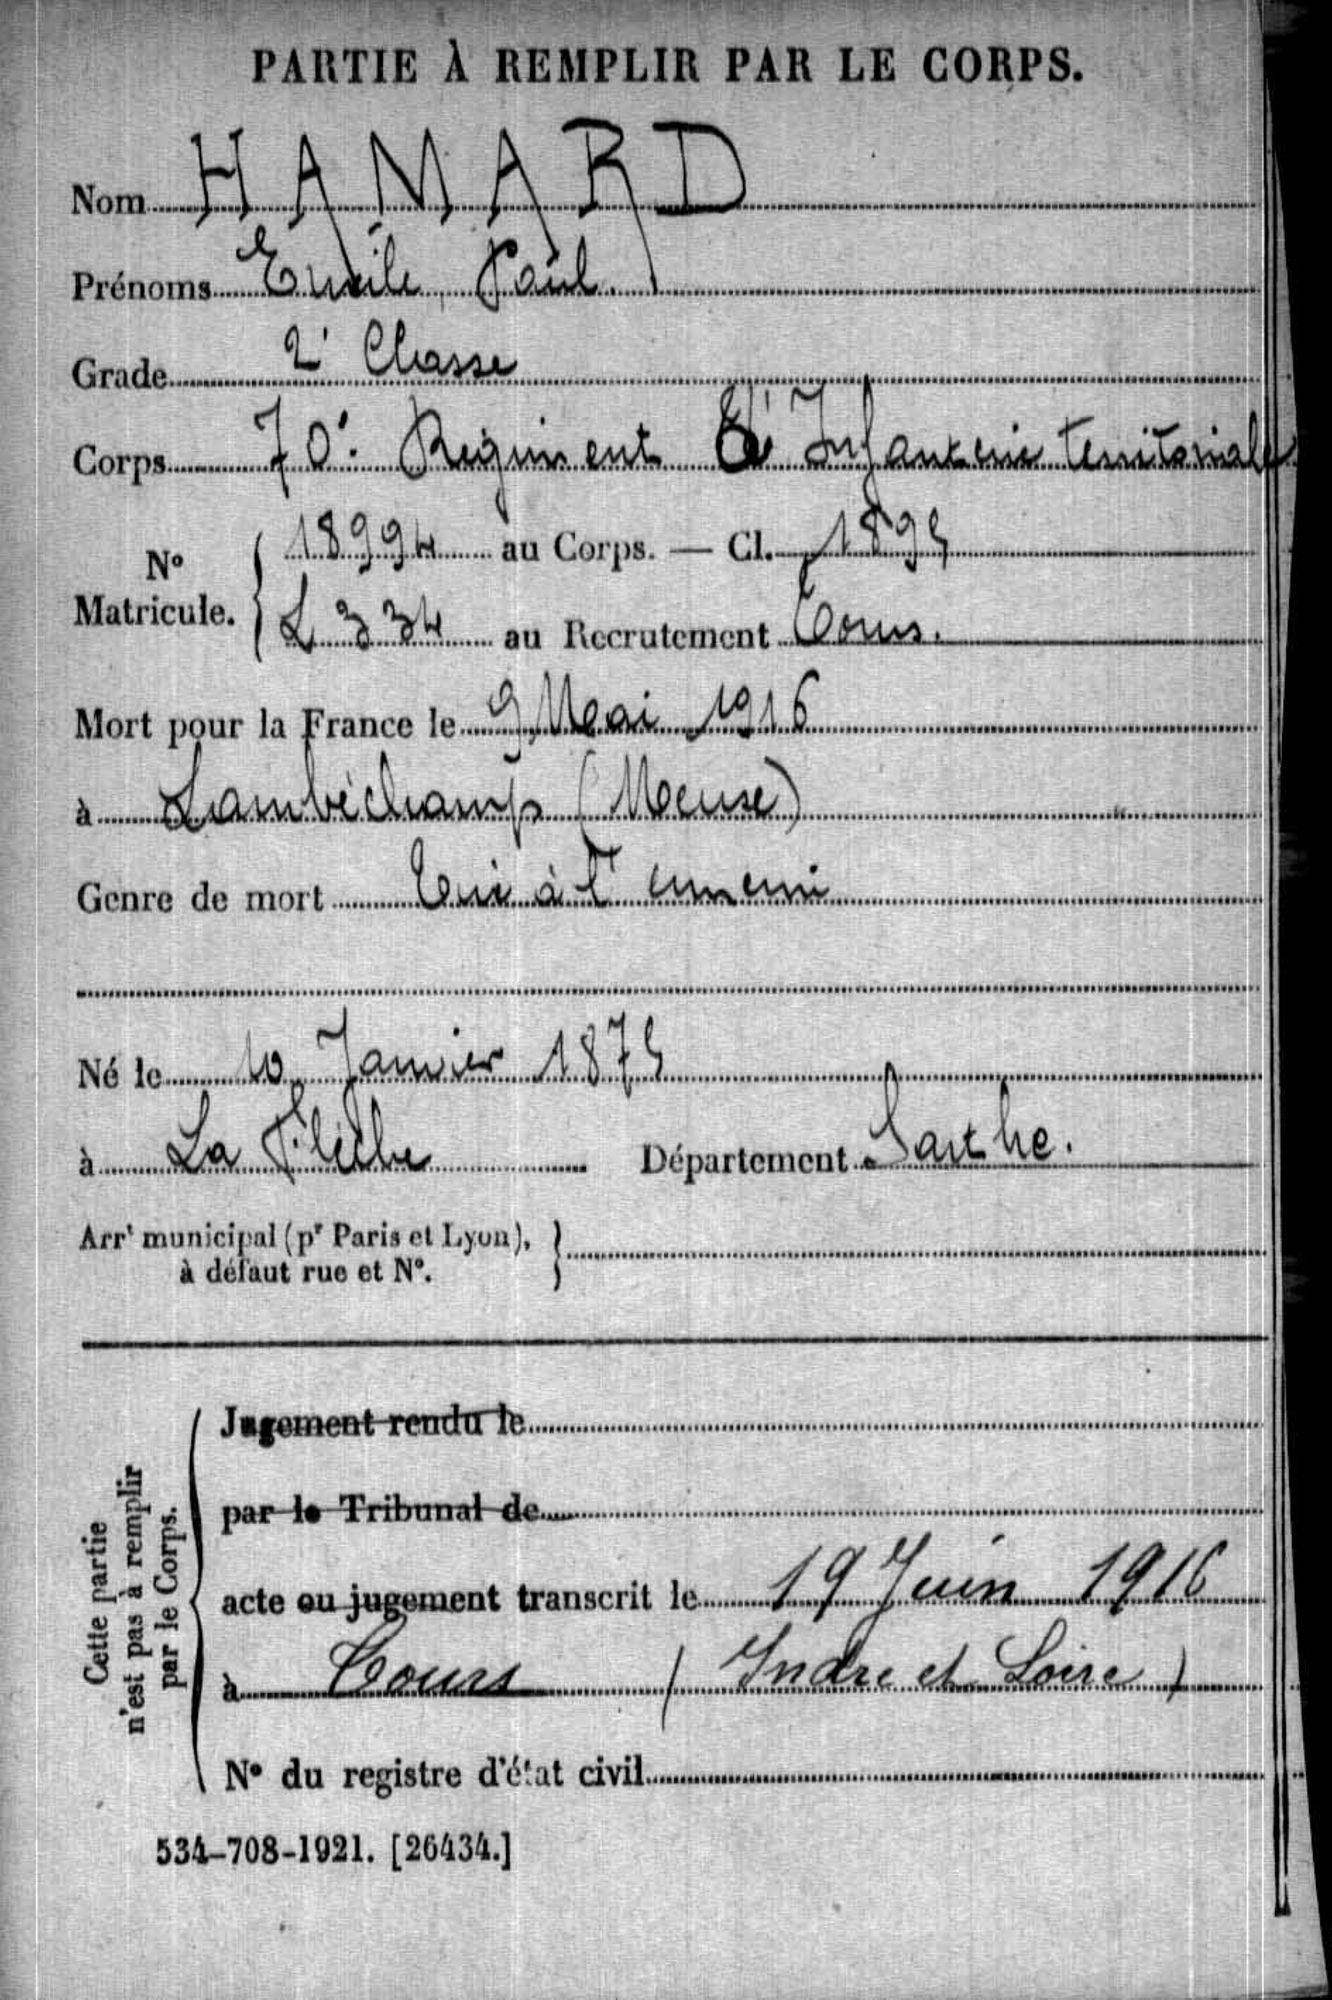 PARTIE À REMPLIR PAR LE CORPS.
Nom HAMARD
Prénoms Emile Paul.
Grade 2e Classe
Corps 70e Régiment d'Infanterie territoriale
N° Matricule. 18994 au Corps. — Cl. 1895
L 334 au Recrutement Tours.
Mort pour la France le 9 Mai 1916
à Lambéchamp (Meuse)
Genre de mort Tué à l'ennemi
Né le 10 Janvier 1875
à La Flèche Département Sarthe.
Arrt municipal (pr Paris et Lyon),
à défaut rue et N°.
Cette partie
n'est pas à remplir
par le Corps.
Jugement rendu le
par le Tribunal de
acte ou jugement transcrit le 19 Juin 1916
à Tours (Indre et Loire)
N° du registre d'état civil
534-708-1921. [26434.]